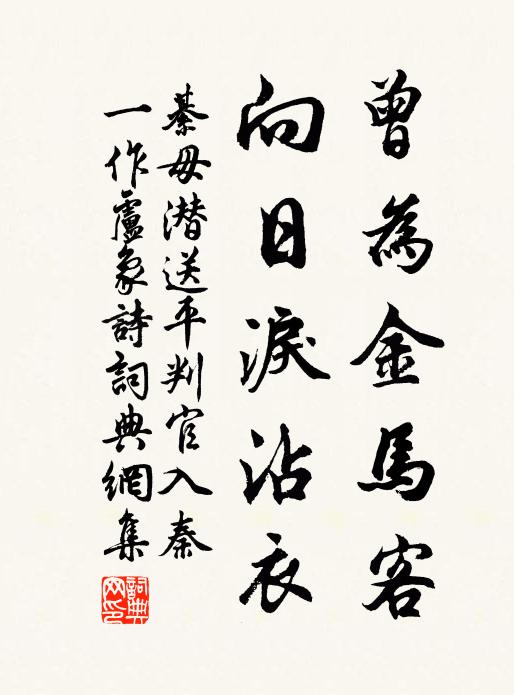 曾為金馬客
向日淚沾衣
綦毋潜送平判官入秦
一作盧象詩詞典網集
詞典網印